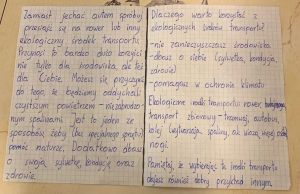 Zamiast jechać autem spróbuj
przesiąść się na rower lub inny
ekologiczny środek transportu.
Przynosi to bardzo dużo korzyści
nie tylko dla środowiska, ale też
dla Ciebie. Możesz się przyczynić
do tego, że będziemy oddychali
czystszym powietrzem - niezabrudzo-
nym spalinami. Jest to jeden ze
sposobów, żeby (bez specjalnego sprzętu)
pomóc naturze. Dodatkowo dbasz
o swoją sylwetkę, kondycję oraz
zdrowie.
Dlaczego warto korzystać z
ekologicznych środków transportu?
- nie zanieczyszczasz środowiska
- dbasz o siebie (sylwetka, kondycja,
zdrowie)
- pomagasz w ochronie klimatu
Ekologiczne środki transportu: rower, hulajnoga,
transport zbiorowy - tramwaj, autobus,
kolej (wytwarzają spaliny, ale wożą więcej osób),
nogi.
Pamiętaj, że wybierając te środki transportu
dajesz również dobry przykład innym.